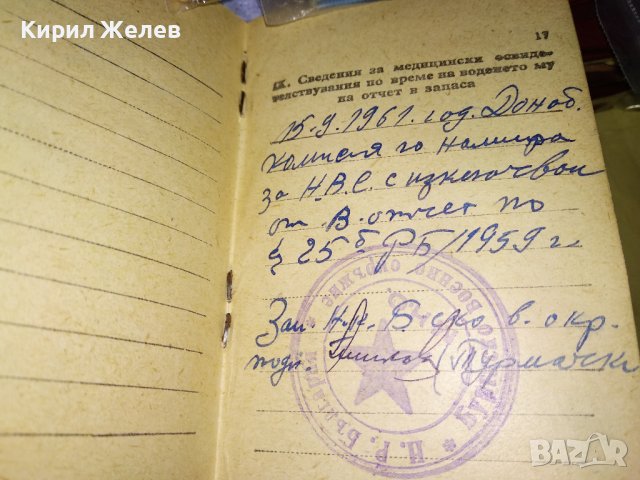 Кирил Желев
17
IX. Сведения за медицински освиде-
телствувания по време на воденето му
на отчет в запаса
15.9.1961. год. Доноб.
комисия го намира
за Н.В.С. с изключван
от В. отчет по
§ 25 б ФБ/1959 г.
Зам. Н-к. В. окр.
подп.
Н. Р. България
военно окръжие
BAZAR
bg